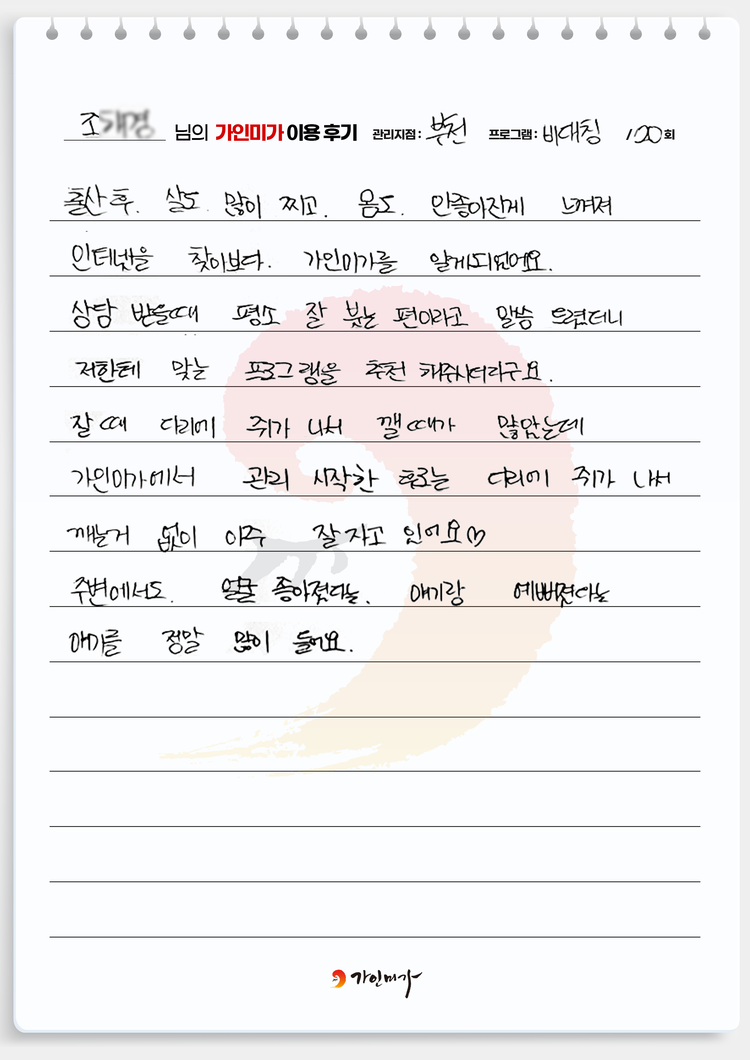 조 님의 가인미가 이용 후기 관리지점 : 부천 프로그램 : 비대칭 100 회
출산 후. 살도 많이 찌고. 몸도. 안좋아진게 느껴져
인터넷을 찾아보다. 가인미가를 알게되었어요.
상담 받을때 평소 잘 붓는 편이라고 말씀 드렸더니
저한테 맞는 프로그램을 추천 해주시더라구요.
잘때 다리에 쥐가 나서 깰때가 많았는데
가인미가에서 관리 시작한 후로는 다리에 쥐가 나서
깨는거 없이 아주 잘자고 있어요♡
주변에서도. 얼굴 좋아졌다는. 얘기랑 예뻐졌다는
얘기를 정말 많이 들어요.
가인미가